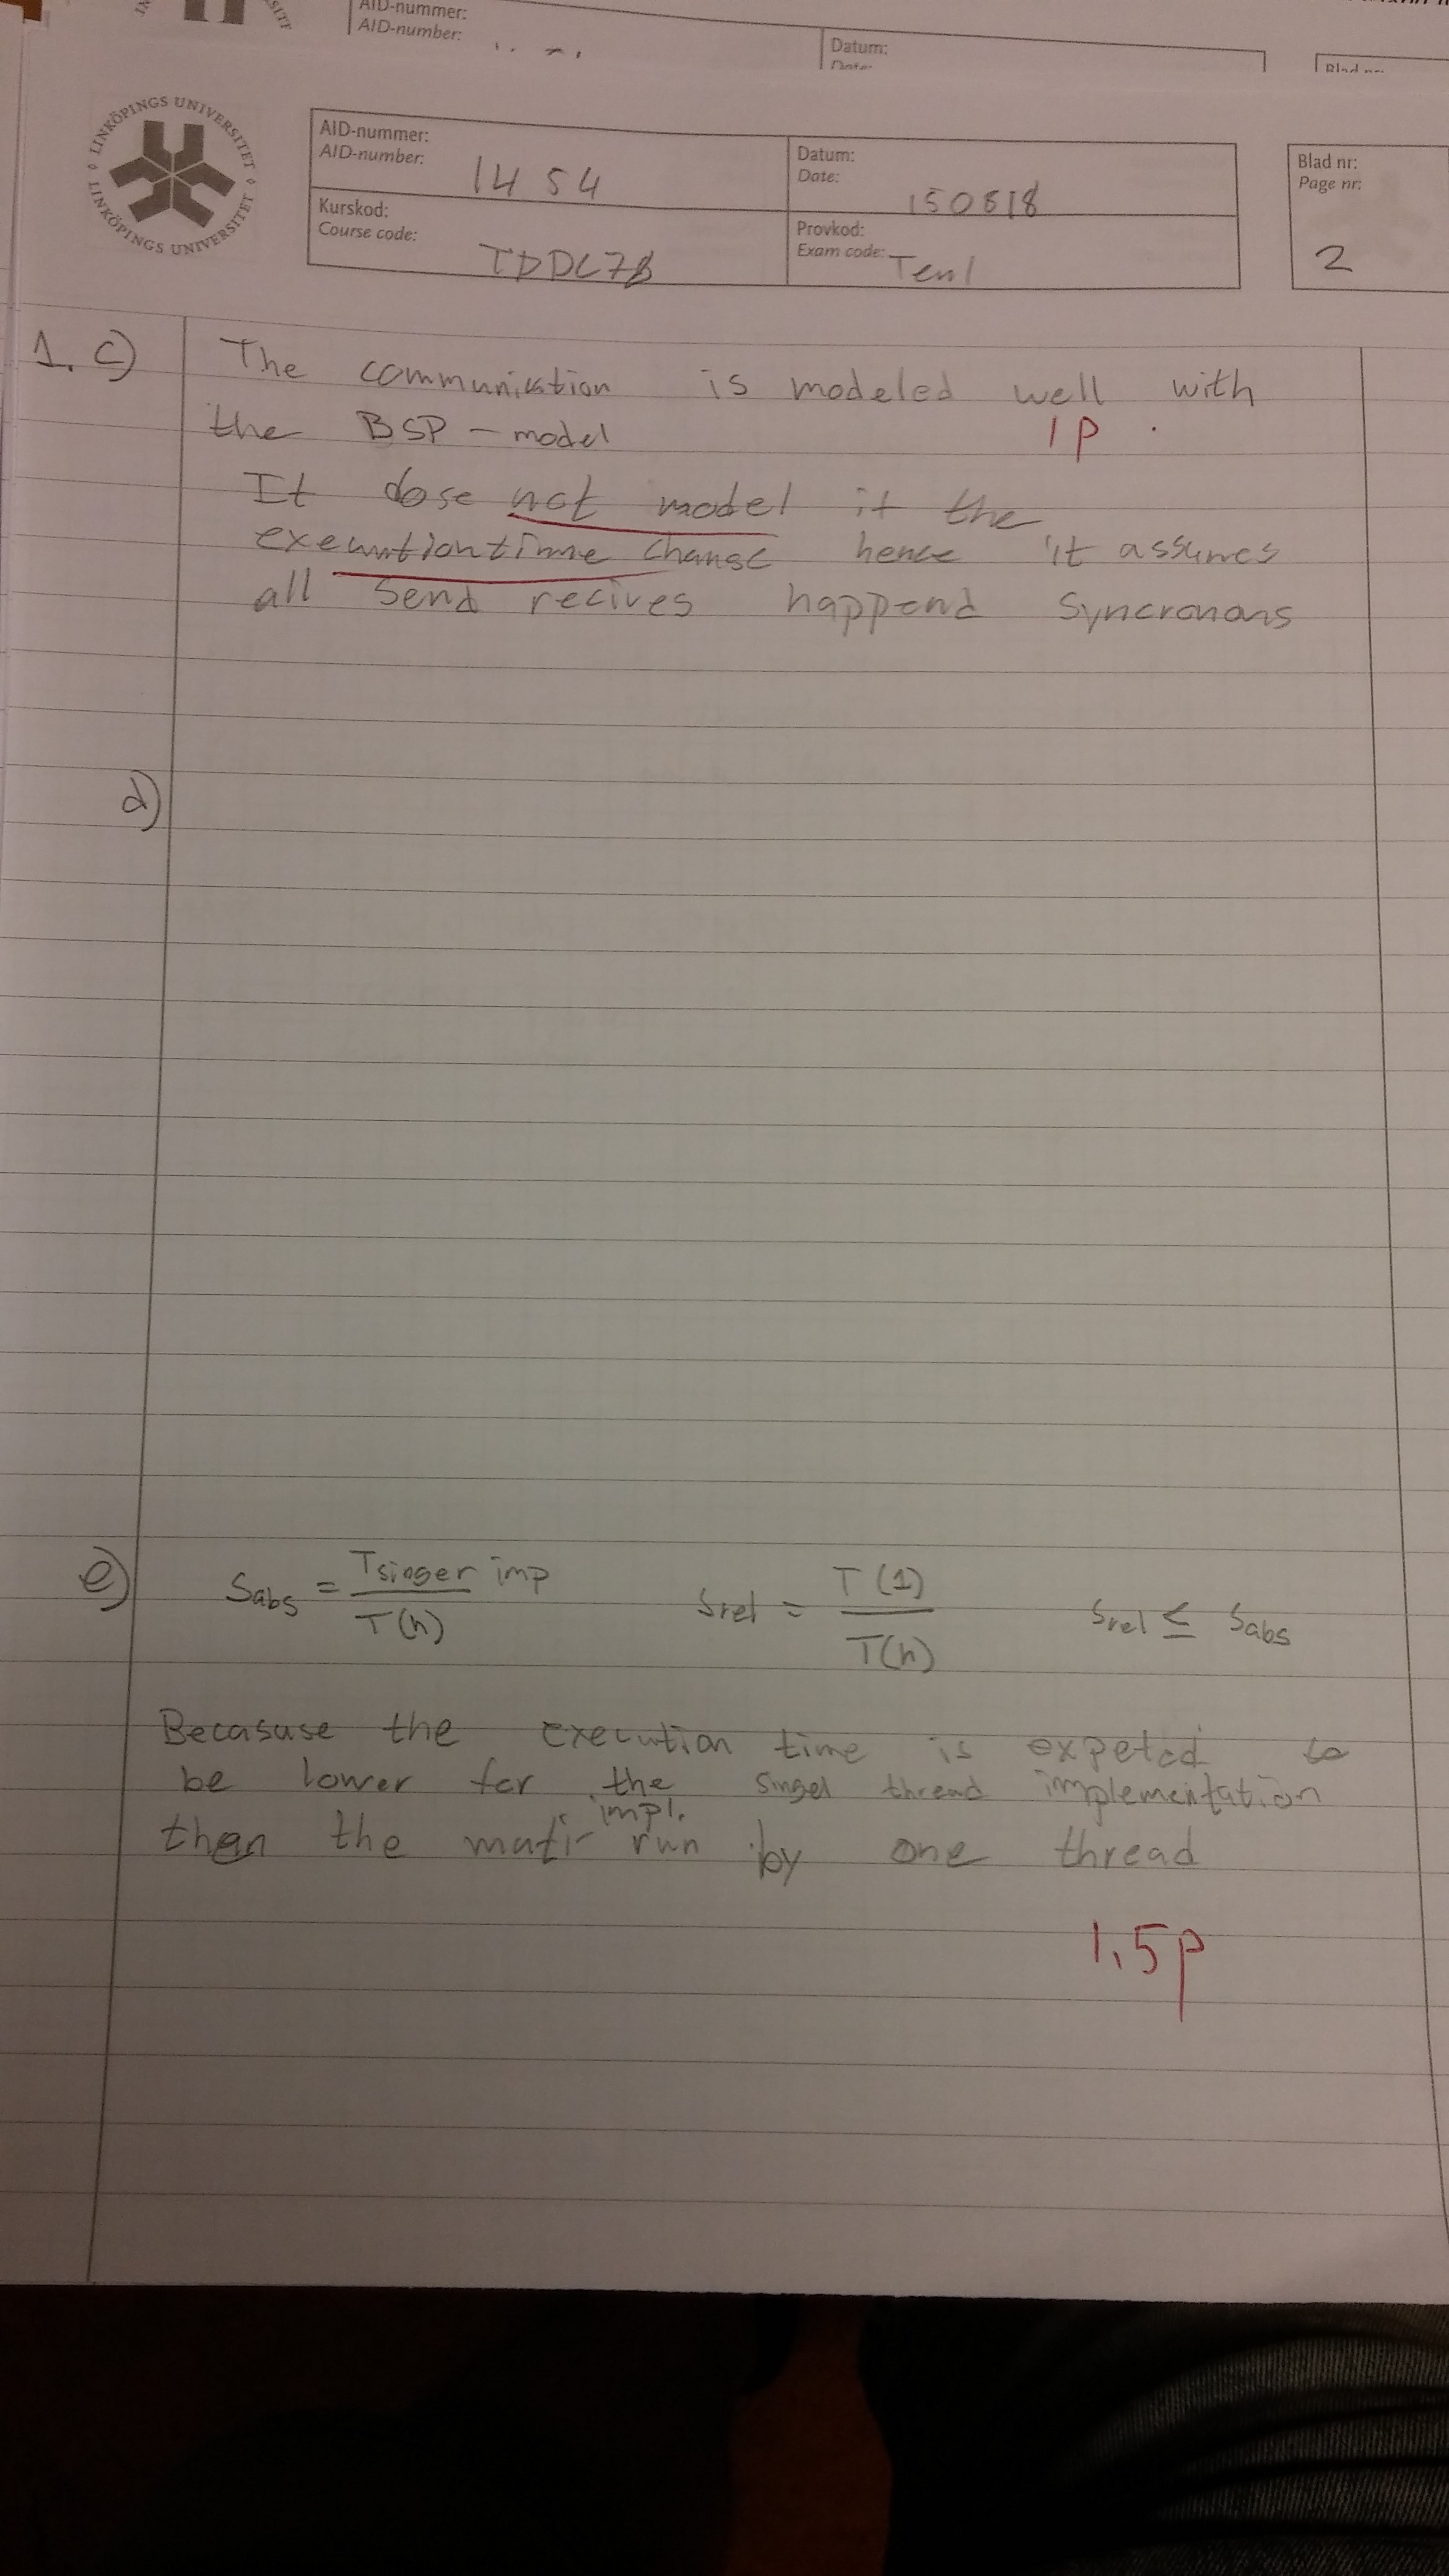 AID-nummer:
AID-number:
Datum:
Date:
Blad nr:
LINKÖPINGS UNIVERSITET
LINKÖPINGS UNIVERSITET
AID-nummer:
AID-number: 1454
Datum:
Date: 150818
Blad nr:
Page nr:
2
Kurskod:
Course code: TDDC78
Provkod:
Exam code: Ten1
1. c) The communication is modeled well with
the BSP-model
1p
It dose not model it the
executiontime change hence it assumes
all send recives happend syncronans
d)
e) Sabs = Tsinger imp / T(n) Srel = T(1) / T(n) Srel ≤ Sabs
Becasuse the execution time is expeted to
be lower for the singel thread implementation
impl.
then the mutli run by one thread
1,5p